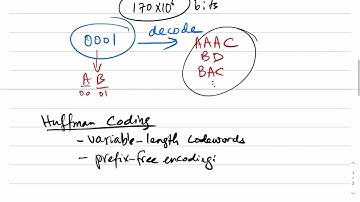 170×10⁶ bits
0001 decode AAAC
BD
A B BAC
00 01
Huffman Coding
- variable-length codewords
- prefix-free encoding:
1/2